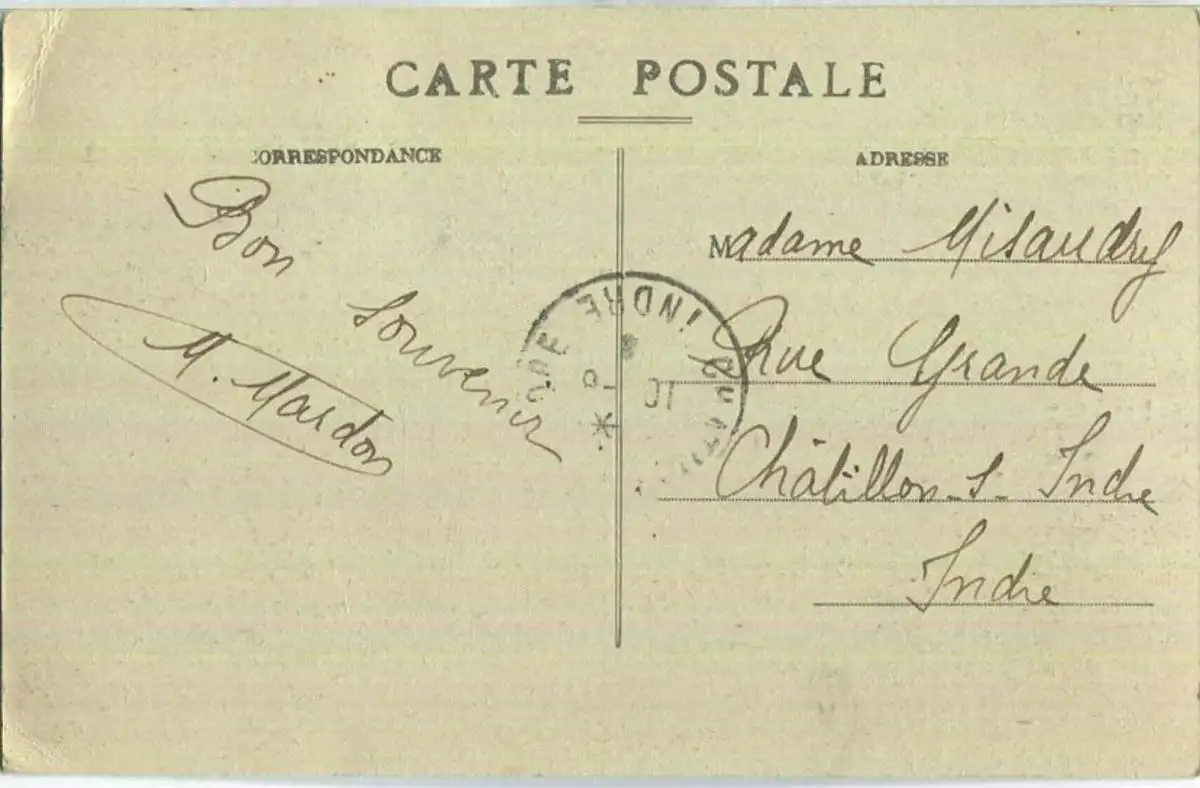 CARTE POSTALE
CORRESPONDANCE
ADRESSE
Bon
Souvenir
M. Mardon
Madame Misaudry
Rue Grande
Châtillon-s-Indre
Indre
INDRE